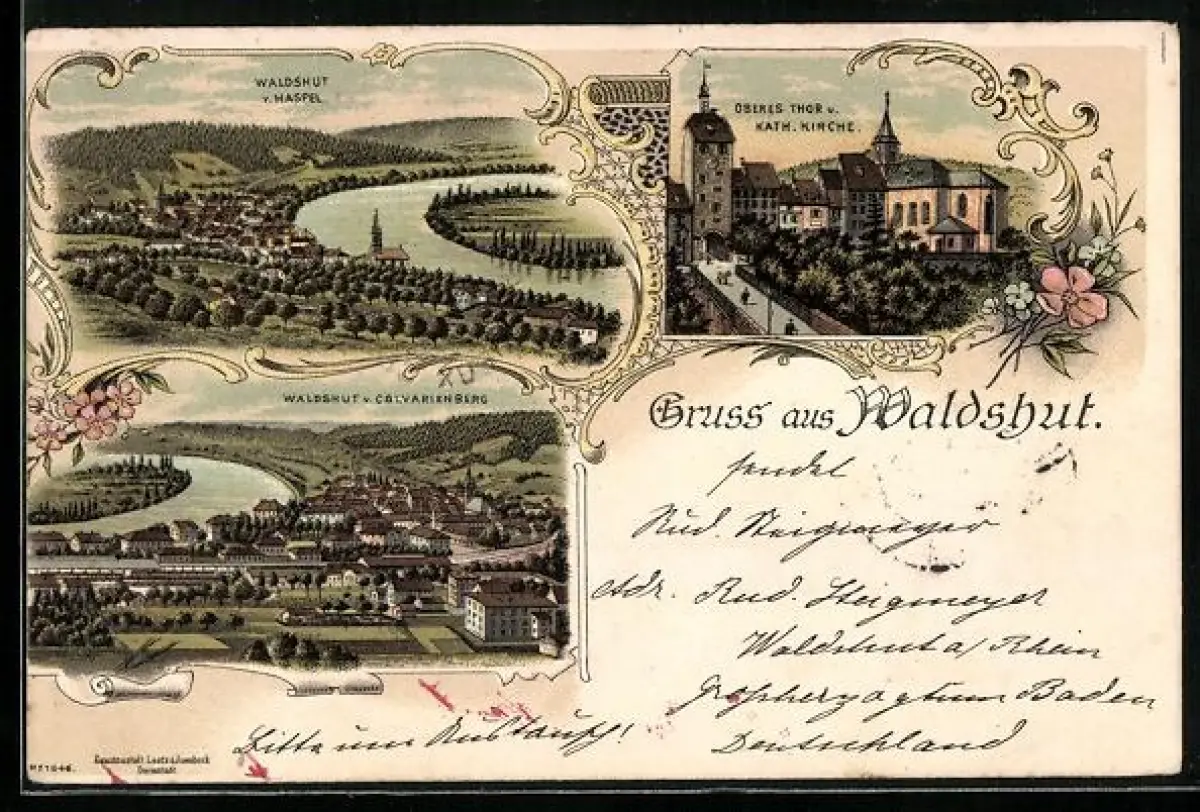 WALDSHUT
v. HASPEL
OBERES THOR u.
KATH. KIRCHE.
WALDSHUT v. CALVARIENBERG
Gruss aus Waldshut.
sendet
Rud. Steigmeyer
Adr. Rud. Steigmeyer
Waldshut a/Rhein
Großherzogtum Baden
Deutschland
Bitte um Austausch!
Kunstanstalt Lautz & Isenbeck
Darmstadt